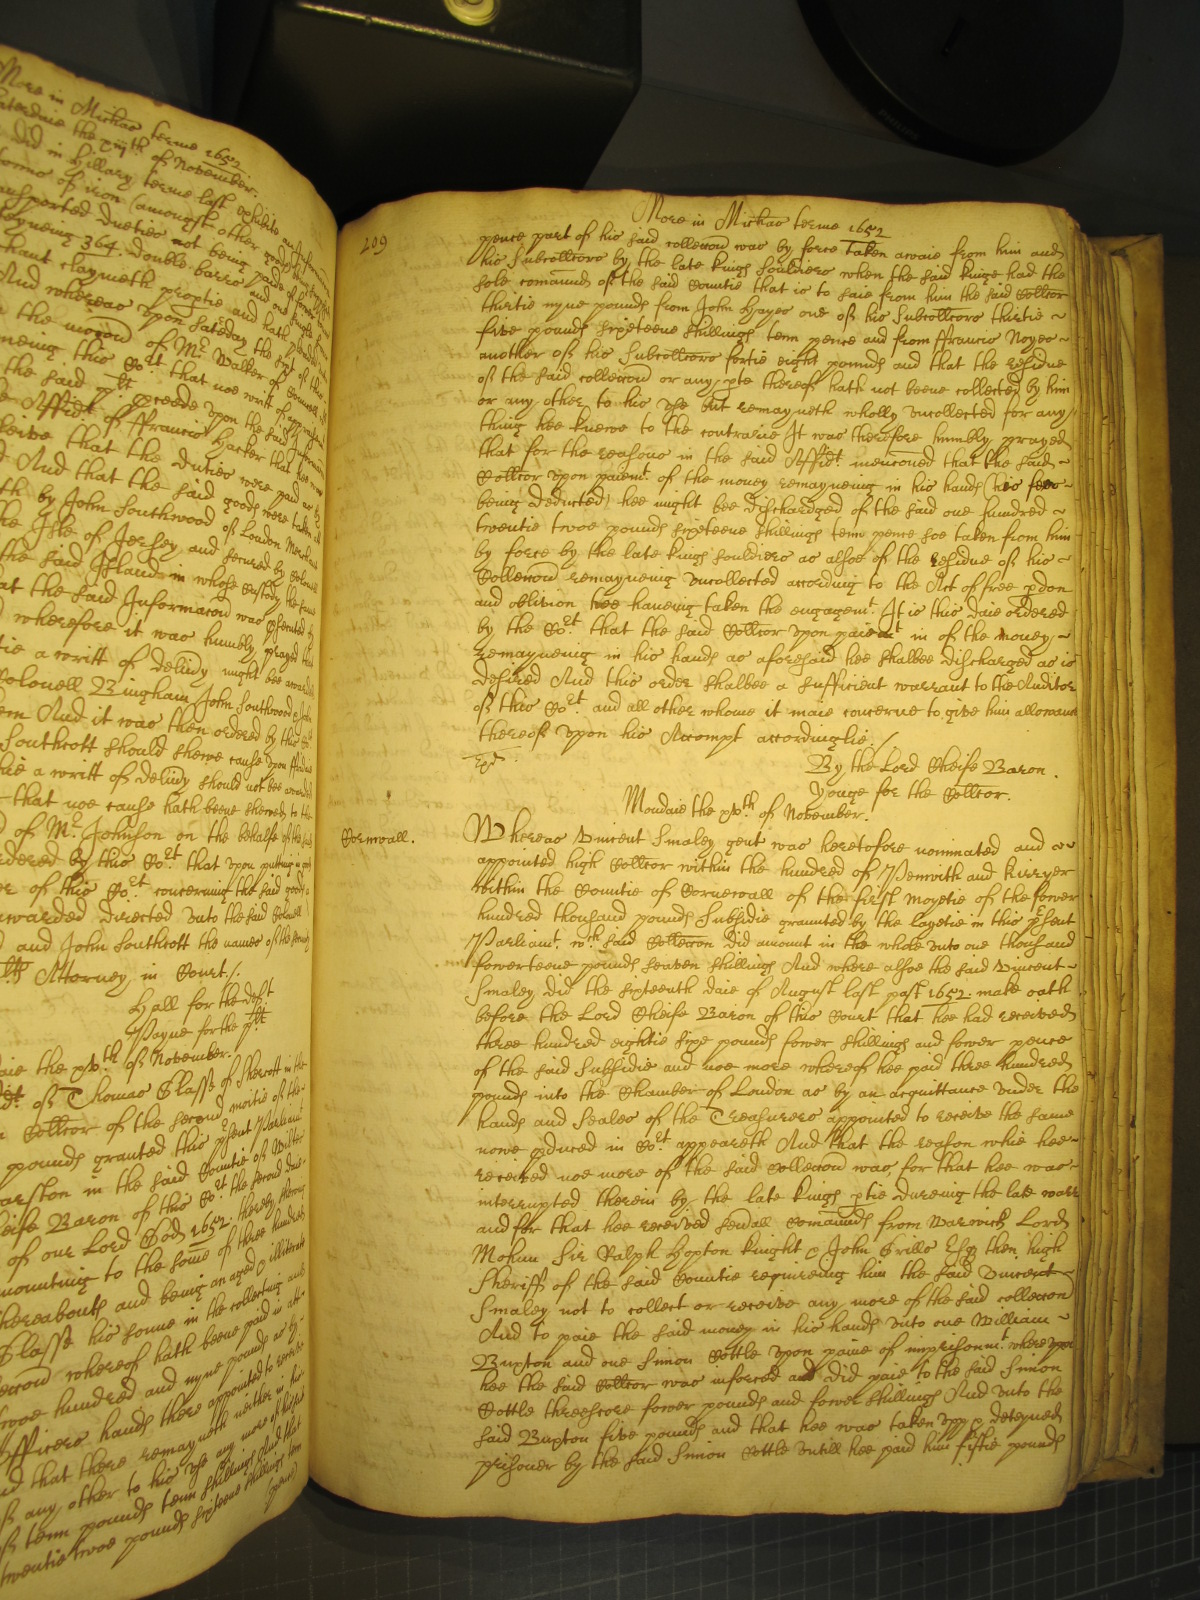 More in Michas terme 1652
Saterdaie the xiijth of November.
did in Hillary terme last exhibite an Informacon
somo of iron (amongst other goods
transported Dueties not being paide
361. double barrs and one single
chant claymeth propertie and hath pleaded
And whereas upon Saterday the
the mocon of Mr. Walker of Counsell
this Cort that noe writt of
the said plt. pceede upon the said Informacon
Affidt. of Ffrancis Hacker that hee
that the Dueties were paid
And that the said goods were taken
by John Southwood of London Mercht
the Isle of Jersey and secured by Colonell
the said Island in whose custody the same
at the said Informacon was exhited
wherefore it was humbly prayed that
a writt of delidy might bee awarded
Colonell Bingham John Southwood & John
And it was then ordered by this Cort
Southcott should shewe cause upon
a writt of delidy should not bee awarded
that noe cause hath beene shewed to the
of Mr. Johnson on the behalfe of the
ordered by this Cort that upon putting in
of this Cort concerning the said goods
awarded directed unto the said Colonell
and John Southcott the names of the
plts Attorney in Court./.
Hall for the deft.
Payne for the plt
the xvth of November.
of Thomas Glasse of Shercott in the
Colltor of the second moitie of the
pounds granted this psent Parliamt
in the said Countie of Wilts
Cheife Baron of this Cort the second daie
of our Lord God 1652. thereby shewing
amounting to the some of three hundred
thereabouts and being an aged & illiterate
Glasse his sonne in the collecting and
whereof hath beene paid in
twoe hundred and nyne pounds
Officers hands there appointed to receive
and that there remayneth neither in his
any other to his use any more of his said
tenn pounds tenn shillings And that
twentie twoe pounds sixteene shillings tenn
(pence)
209
More in Michas terme 1652
pence part of his said colleccon was by force taken awaie from him and
his Subcolltors by the late kings Souldiers when the said kinge had the
sole comaund of the said Countie that is to saie from him the said Colltor
thirtie nyne pounds from John Hayes one of his Subcolltors thirtie ~
five pounds sixteene shillings tenn pence and from Ffrancis Noyes ~
another of his Subcolltors fortie eight pounds and that the residue
of the said colleccon or any pte thereof hath not beene collected by him
or any other to his use but remayneth wholly uncollected for any
thing hee knewe to the contrarie It was therefore humbly prayed
that for the reasons in the said Affidt. mencioned that the said ~
Colltor upon paiemt. of the money remayneing in his hands his fees ~
being deducted hee might bee dischardged of the said one hundred ~
twentie twoe pounds sixteene shillings tenn pence soe taken from him ~
by force by the late kings souldiers as alsoe of the residue of his ~
Colleccon remayneing uncollected according to the Act of free pdon
and oblivion hee haveing taken the engagemt. It is this daie ordered
by the Cort. that the said Colltor upon paiemt in of the money ~
remayneing in his hands as aforesaid hee shalbee discharged as is
desired And this order shalbee a sufficient warrant to the Auditor
of this Cort. and all other whome it maie concerne to give him allowance
thereof upon his Accompt accordinglie /
By the Lord Cheife Baron.
Yonge for the Colltor.
Mondaie the xvth. of November.
Cornwall.
Whereas Vincent Smaley gent was heretofore nominated and ~
appointed high Colltor within the hundred of Penwith and Kirryer
within the Countie of Cornewall of the first moyetie of the fower
hundred thousand pounds Subsidie graunted by the Layetie in this psent
Parliamt. wch. said Colleccon did amount in the whole unto one thousand
fowerteene pounds seaven shillings And where alsoe the said Vincent ~
Smaley did the sixteenth daie of August last past 1652. make oath
before the Lord Cheife Baron of this Court that hee had received
three hundred eightie sixe pounds fower shillings and fower pence
of the said Subsidie and noe more whereof hee paid three hundred
pounds into the Chamber of London as by an acquittance under the
hands and Seales of the Treasurers appointed to receive the same
nowe pduced in Cort. appeareth And that the reason whie hee ~
received noe more of the said Colleccon was for that hee was ~
interrupted therein by the late kings ptie dureing the late warr
and for that hee received sevall Comaunds from Warwick Lord
Mohun Sir Ralph Hopton knight & John Grills Esq then high
Sheriff of the said Countie requireing him the said Vincent
Smaley not to collect or receive any more of the said colleccon
And to paie the said money in his hands unto one William ~
Buxton and one Simon Cottle upon paine of imprisonmt. whereupon
hee the said Colltor was inforced and did paie to the said Simon
Cottle threescore fower pounds and fower shillings And unto the
said Buxton five pounds and that hee was taken upp & deteyned
prisoner by the said Simon Cottle untill hee paid him fiftie pounds